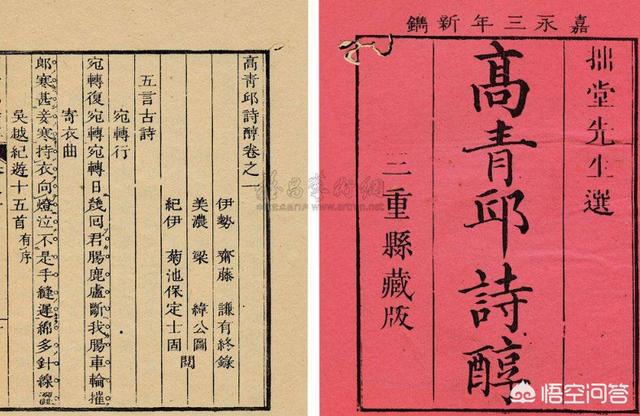 嘉永三年新鐫
拙堂先生選
髙青邱詩醇
三重縣藏版
高青邱詩醇卷之一
伊勢 齋藤 謙有終錄
美濃 梁 緯公圖
紀伊 菊池保定士固
閱
五言古詩
宛轉行
宛轉復宛轉宛轉日幾回君腸鹿盧斷我腸車輪摧
寄衣曲
郎寒甚妾寒持衣向燈泣不是手縫遲綿多針線澀
吳越紀遊十五首 有序
悟空问答